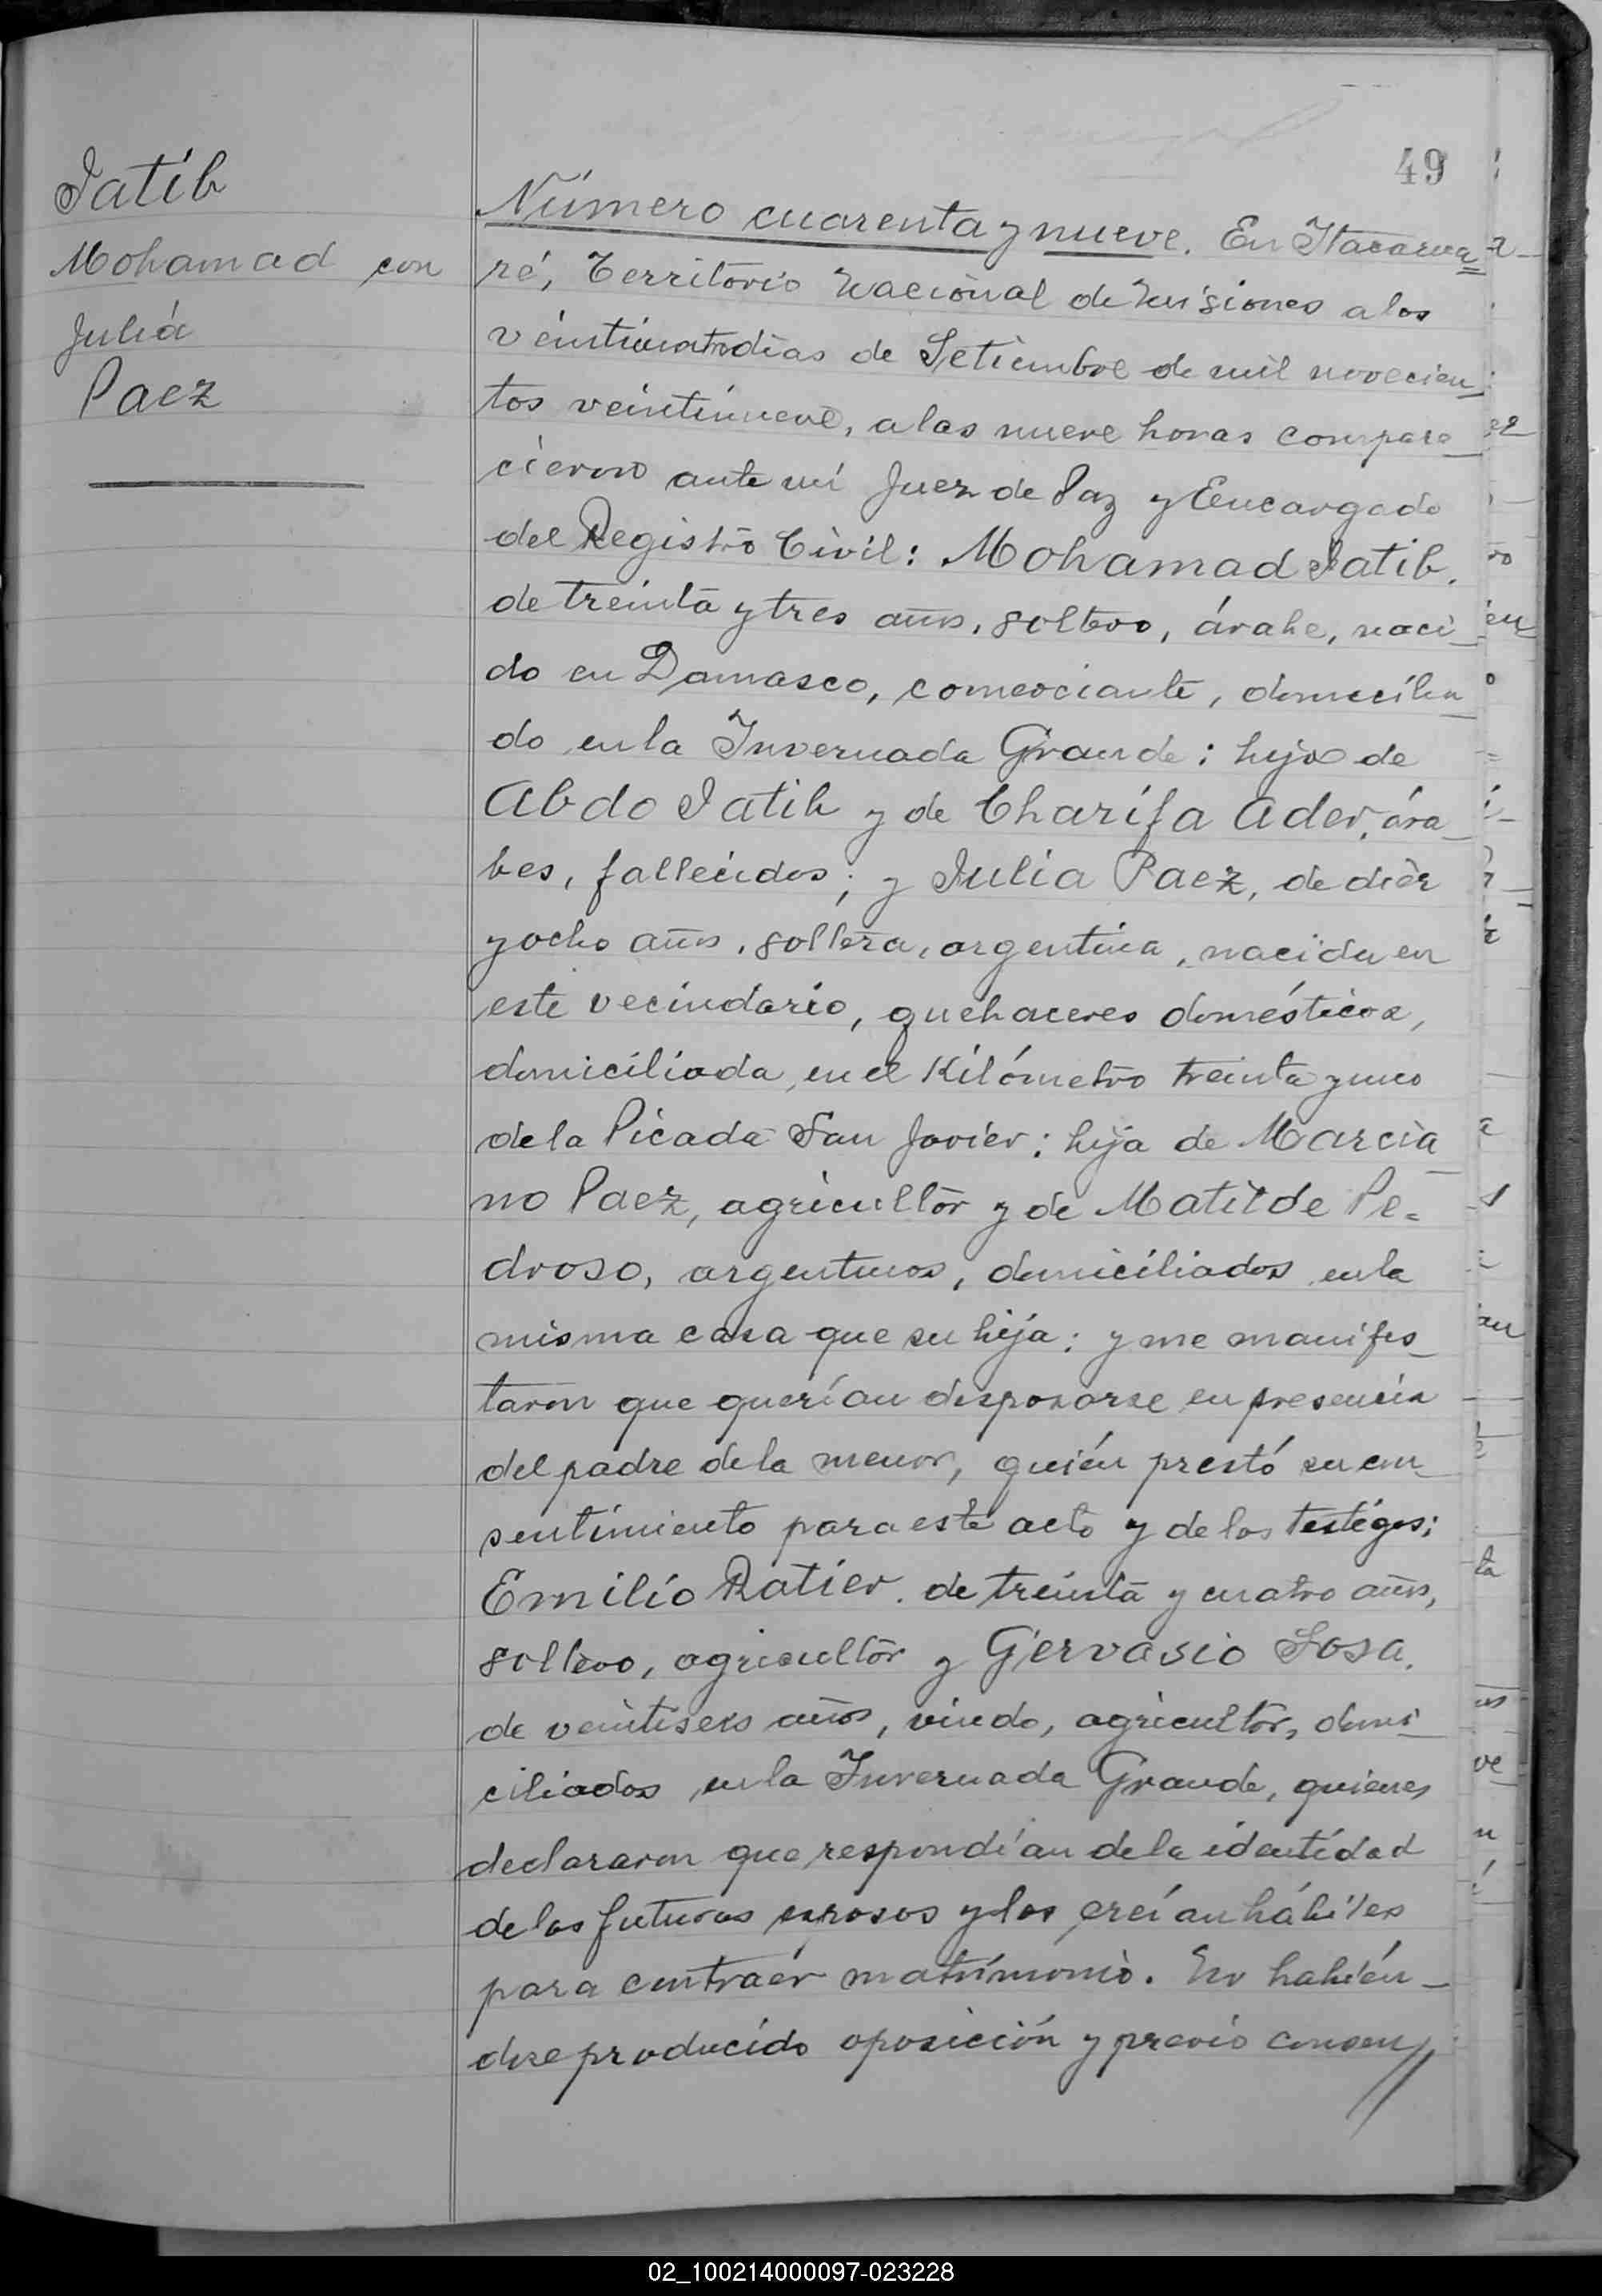 49
Jatib
Mohamad con
Julia
Paez
Número cuarenta y nueve. En Itacarua=
ré, Territorio Nacional de Misiones a los
veinticuatro dias de Setiembre de mil novecien
tos veintinueve, a las nueve horas compare_
cieron ante mí Juez de Paz y Encargado
del Registro Civil: Mohamad Jatib.
de treinta y tres años, soltero, árabe, naci_
do en Damasco, comerciante, domicilia_
do en la Invernada Grande; hijo de
Abdo Jatib y de Charifa Ader, ára_
bes, fallecidos; y Julia Paez, de diez
y ocho años, soltera, argentina, nacida en
este vecindario, quehaceres domésticos,
domiciliada en el Kilómetro treinta y uno
de la Picada San Javier; hija de Marcia_
no Paez, agricultor y de Matilde Pe=
droso, argentinos, domiciliados en la
misma casa que su hija; y me manifes_
taron que querían desposarse en presencia
del padre de la menor, quién prestó su con_
sentimiento para este acto y de los testigos;
Emilio Ratier. de treinta y cuatro años,
soltero, agricultor y Gervasio Sosa.
de veintiseis años, viudo, agricultor, domi_
ciliados en la Invernada Grande, quienes
declararon que respondían de la identidad
de los futuros esposos y los creían hábiles
para contraér matrimonio. No habién_
dose producido oposición y previo consen//
02_100214000097-023228